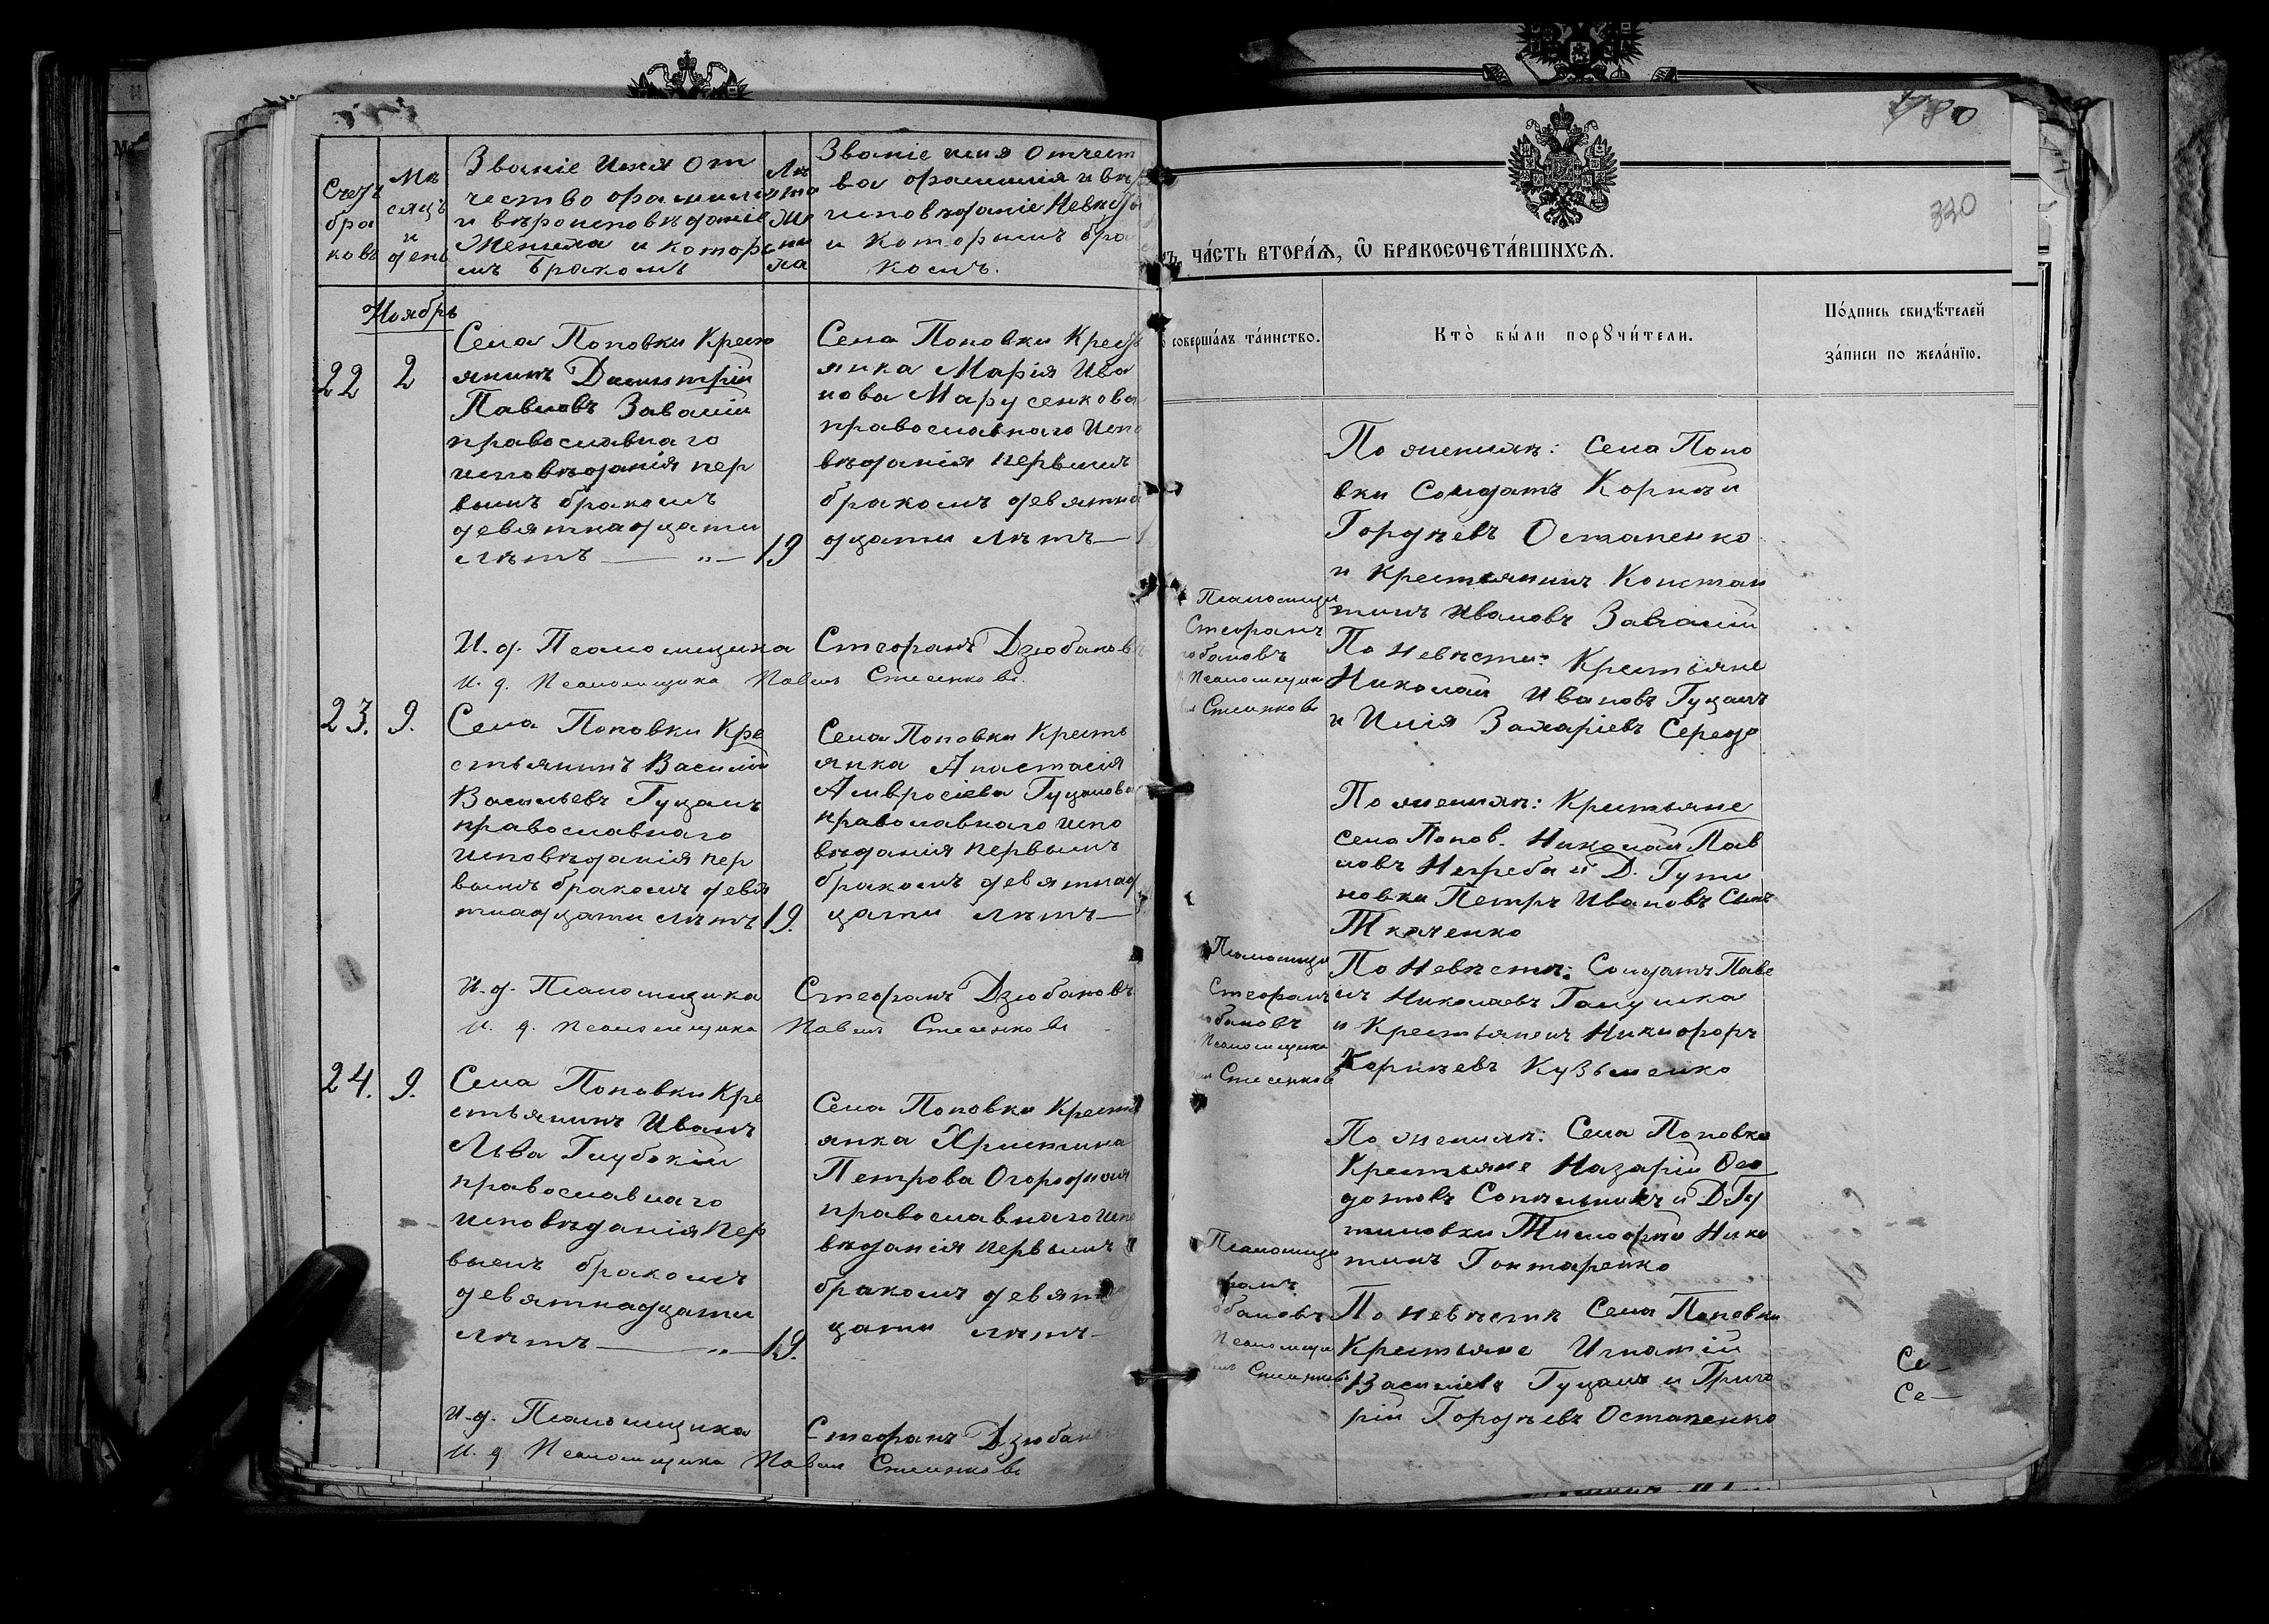 Счетъ
бра
ковъ
Мѣ
сяцъ
и
день
Званіе Имя От
чество фамилія
и вѣроисповѣданіе
Жениха и которы
мъ бракомъ
Лѣ
та
Же
ни
ха
Званіе имя Отчест
ва фамилія и вѣр
исповѣданіе Невѣсты
и которымъ бра
комъ.
Ноябрь
22
2
Села Поповки Крест
янинъ Димитрій
Павловъ ЗаваГій
православнаго
исповѣданія пер
вымъ бракомъ
девятнадцати
лѣтъ — „ — 19
Села Поповки Кресть
янка Марія Ива
нова Марусенкова
православнаго Испо
вѣданія первымъ
бракомъ девятна
дцати лѣтъ —
И. д. Псаломщика Стефанъ Дзюбановъ
И. д. Псаломщика Павелъ Стеценковъ
23.
9.
Села Поповки Кре
стьянинъ Василій
Васильевъ Гуцалъ
православнаго
Исповѣданія пер
вымъ бракомъ девя
тнадцати лѣтъ 19.
Села Поповки Кресть
янка Анастасія
Амвросіева Гуцалова
православнаго испо
вѣданія первымъ
бракомъ девятнад
цати лѣтъ —
И. д. Псаломщика Стефанъ Дзюбановъ
И. д. Псаломщика Павелъ Стеценковъ
24.
9.
Села Поповки Кре
стьянинъ Иванъ
Льва Глубокій
православнаго
Исповѣданія пер
вымъ бракомъ
девятнадцати
лѣтъ — „ — 19.
Села Поповки Кресть
янка Христина
Петрова Огородняя
православнаго Испо
вѣданія первымъ
бракомъ девятна
цати лѣтъ —
И. д. Псаломщика Стефанъ Дзюбановъ
И. д. Псаломщика Павелъ Стеценковъ
780
330
ЧА́СТЬ ВТОРА́Я, Ѿ БРАКОСОЧЕТА́ВШИХСЯ.
совершáлъ тáинство.
Ктò бы́ли порꙋчи́тели.
По́дпись свидѣ́телей
зáписи по желáнїю.
По женихѣ: Села Попо
вки Солдатъ Корнѣй
Гордѣевъ Остапенко
и Крестьянинъ Констан
тинъ Ивановъ
По Невѣсти: Крестьяне
Николай Ивановъ Гуцалъ
и Илія Захаріевъ Середа
Псаломщи
Стефанъ
бановъ
Псаломщика
Стеценковъ
По женихѣ: Крестьяне
села Попов. Николай Пав
ловъ Негреба и Д. Гути
новки Петръ Ивановъ Сынъ
Ткаченко
По Невѣстѣ: Солдатъ Паве
лъ Николаевъ Галушка
и Крестьянинъ Никифоръ
Корнѣевъ Кузьменко
Псаломщи
Стефанъ
бановъ
Псаломщика
Стеценковъ
По женихѣ: Села Поповки
Крестьяне Назарій Ѳео
дотовъ Сопильникъ и Д. Гу
тиновки Тимофѣй Ники
тинъ Гонтаренко
По невѣстѣ Села Поповки
Крестьяне Игнатій
Василіевъ Гуцалъ и Григо
рій Гордѣевъ Остапенко
Псаломщи
фанъ
бановъ
Псаломщи
Стеценковъ
Се-
Се-